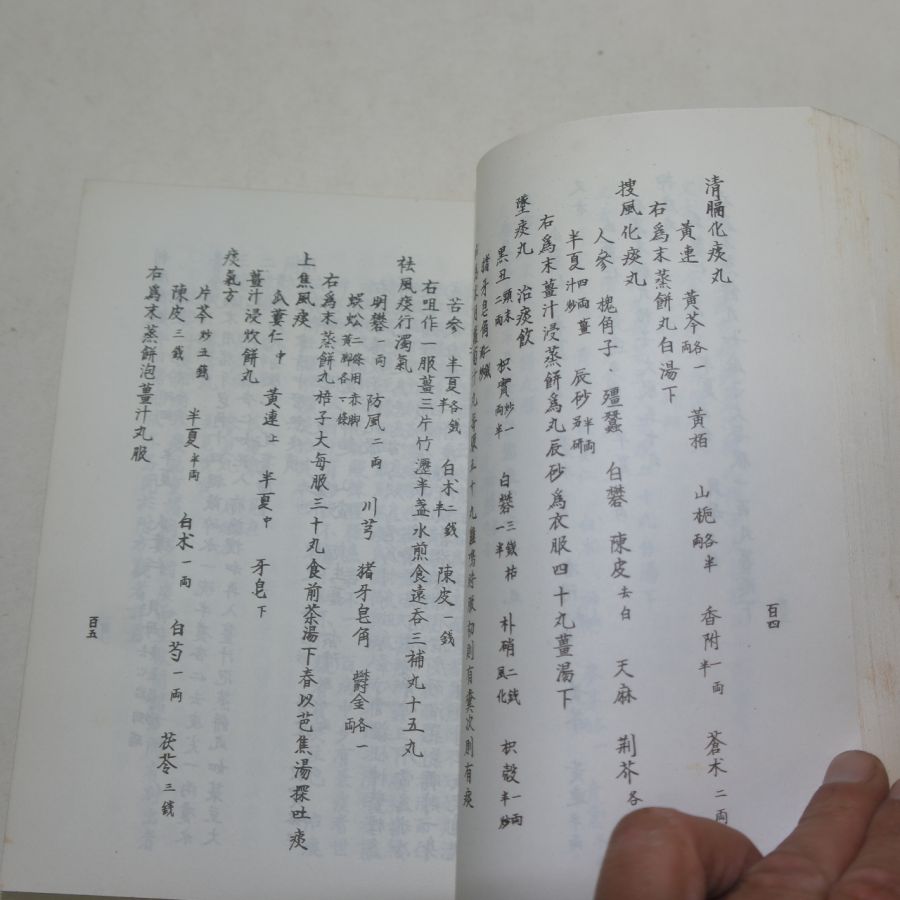 清膈化痰丸
黃連 黃芩各一両 黃栢 山梔各半両 香附一両半 蒼术二両
右爲末蒸餅丸白湯下
搜風化痰丸
人參 槐角子 殭蠶 白礬 陳皮去白 天麻 荆芥各
半夏四両薑汁炒 辰砂半両另研
右爲末薑汁浸蒸餅爲丸辰砂爲衣服四十丸薑湯下
墜痰丸 治痰飲
黑丑頭末二両 枳實炒一両半 白礬三錢枯一半 朴硝二錢風化 枳殼一両半炒
猪牙皂角
丸每服五十丸雞鳴時服初則有糞次則有痰
百四
苦參 半夏各錢半 白术二錢半 陳皮一錢
右咀作一服薑三片竹瀝半盞水煎食遠吞三補丸十五丸
祛風痰行濁氣
明礬一両 防風二両 川芎 猪牙皂角 鬱金各一両
蜈蚣二條用赤脚黃脚各一條
右爲末蒸餅丸梧子大每服三十丸食前茶湯下春以芭焦湯探吐痰
上焦風痰
瓜蔞仁中 黃連上 半夏中 牙皂下
薑汁浸炊餅丸
痰氣方
片芩炒五錢 半夏半両 白术一両 白芍一両 茯苓三錢
陳皮三錢
右爲末蒸餅泡薑汁丸服
百五